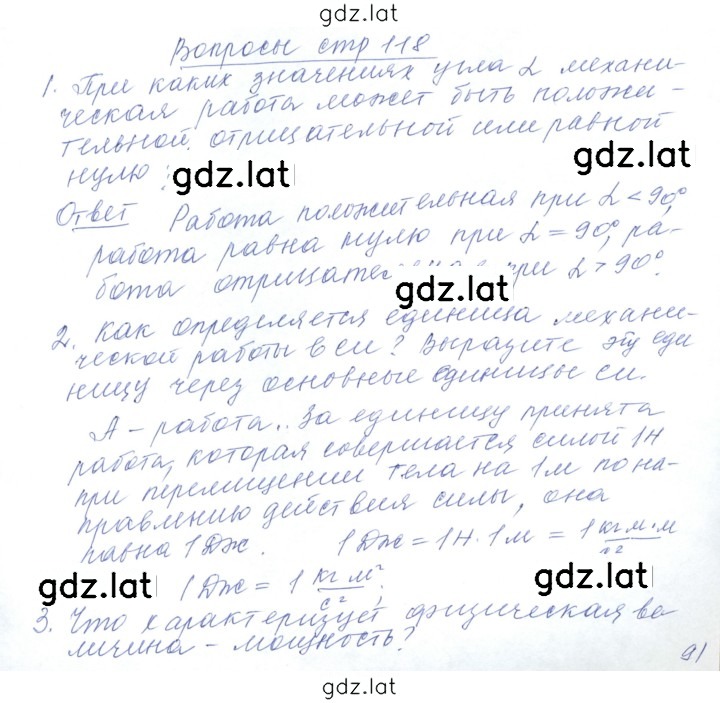 gdz.lat
Вопросы стр 118
1. При каких значениях угла α механи-
ческая работа может быть положи-
тельной, отрицательной или равной
нулю?
gdz.lat
gdz.lat
Ответ Работа положительная при α < 90°,
работа равна нулю при α = 90°, ра-
бота при α > 90°.
gdz.lat
2. Как определяется единица механи-
ческой работы в си? Выразите эту еди
ницу через основные единицы си.
А - работа.. За единицу принята
работа, которая совершается силой 1Н
при перемещении тела на 1м по на-
правлению действия силы, она
равна 1Дж. 1Дж = 1Н·1м = 1 кг м·м/с²
gdz.lat 1Дж = 1 кг м²/с². gdz.lat
3. Что характеризует физическая ве-
личина - мощность?
91
gdz.lat